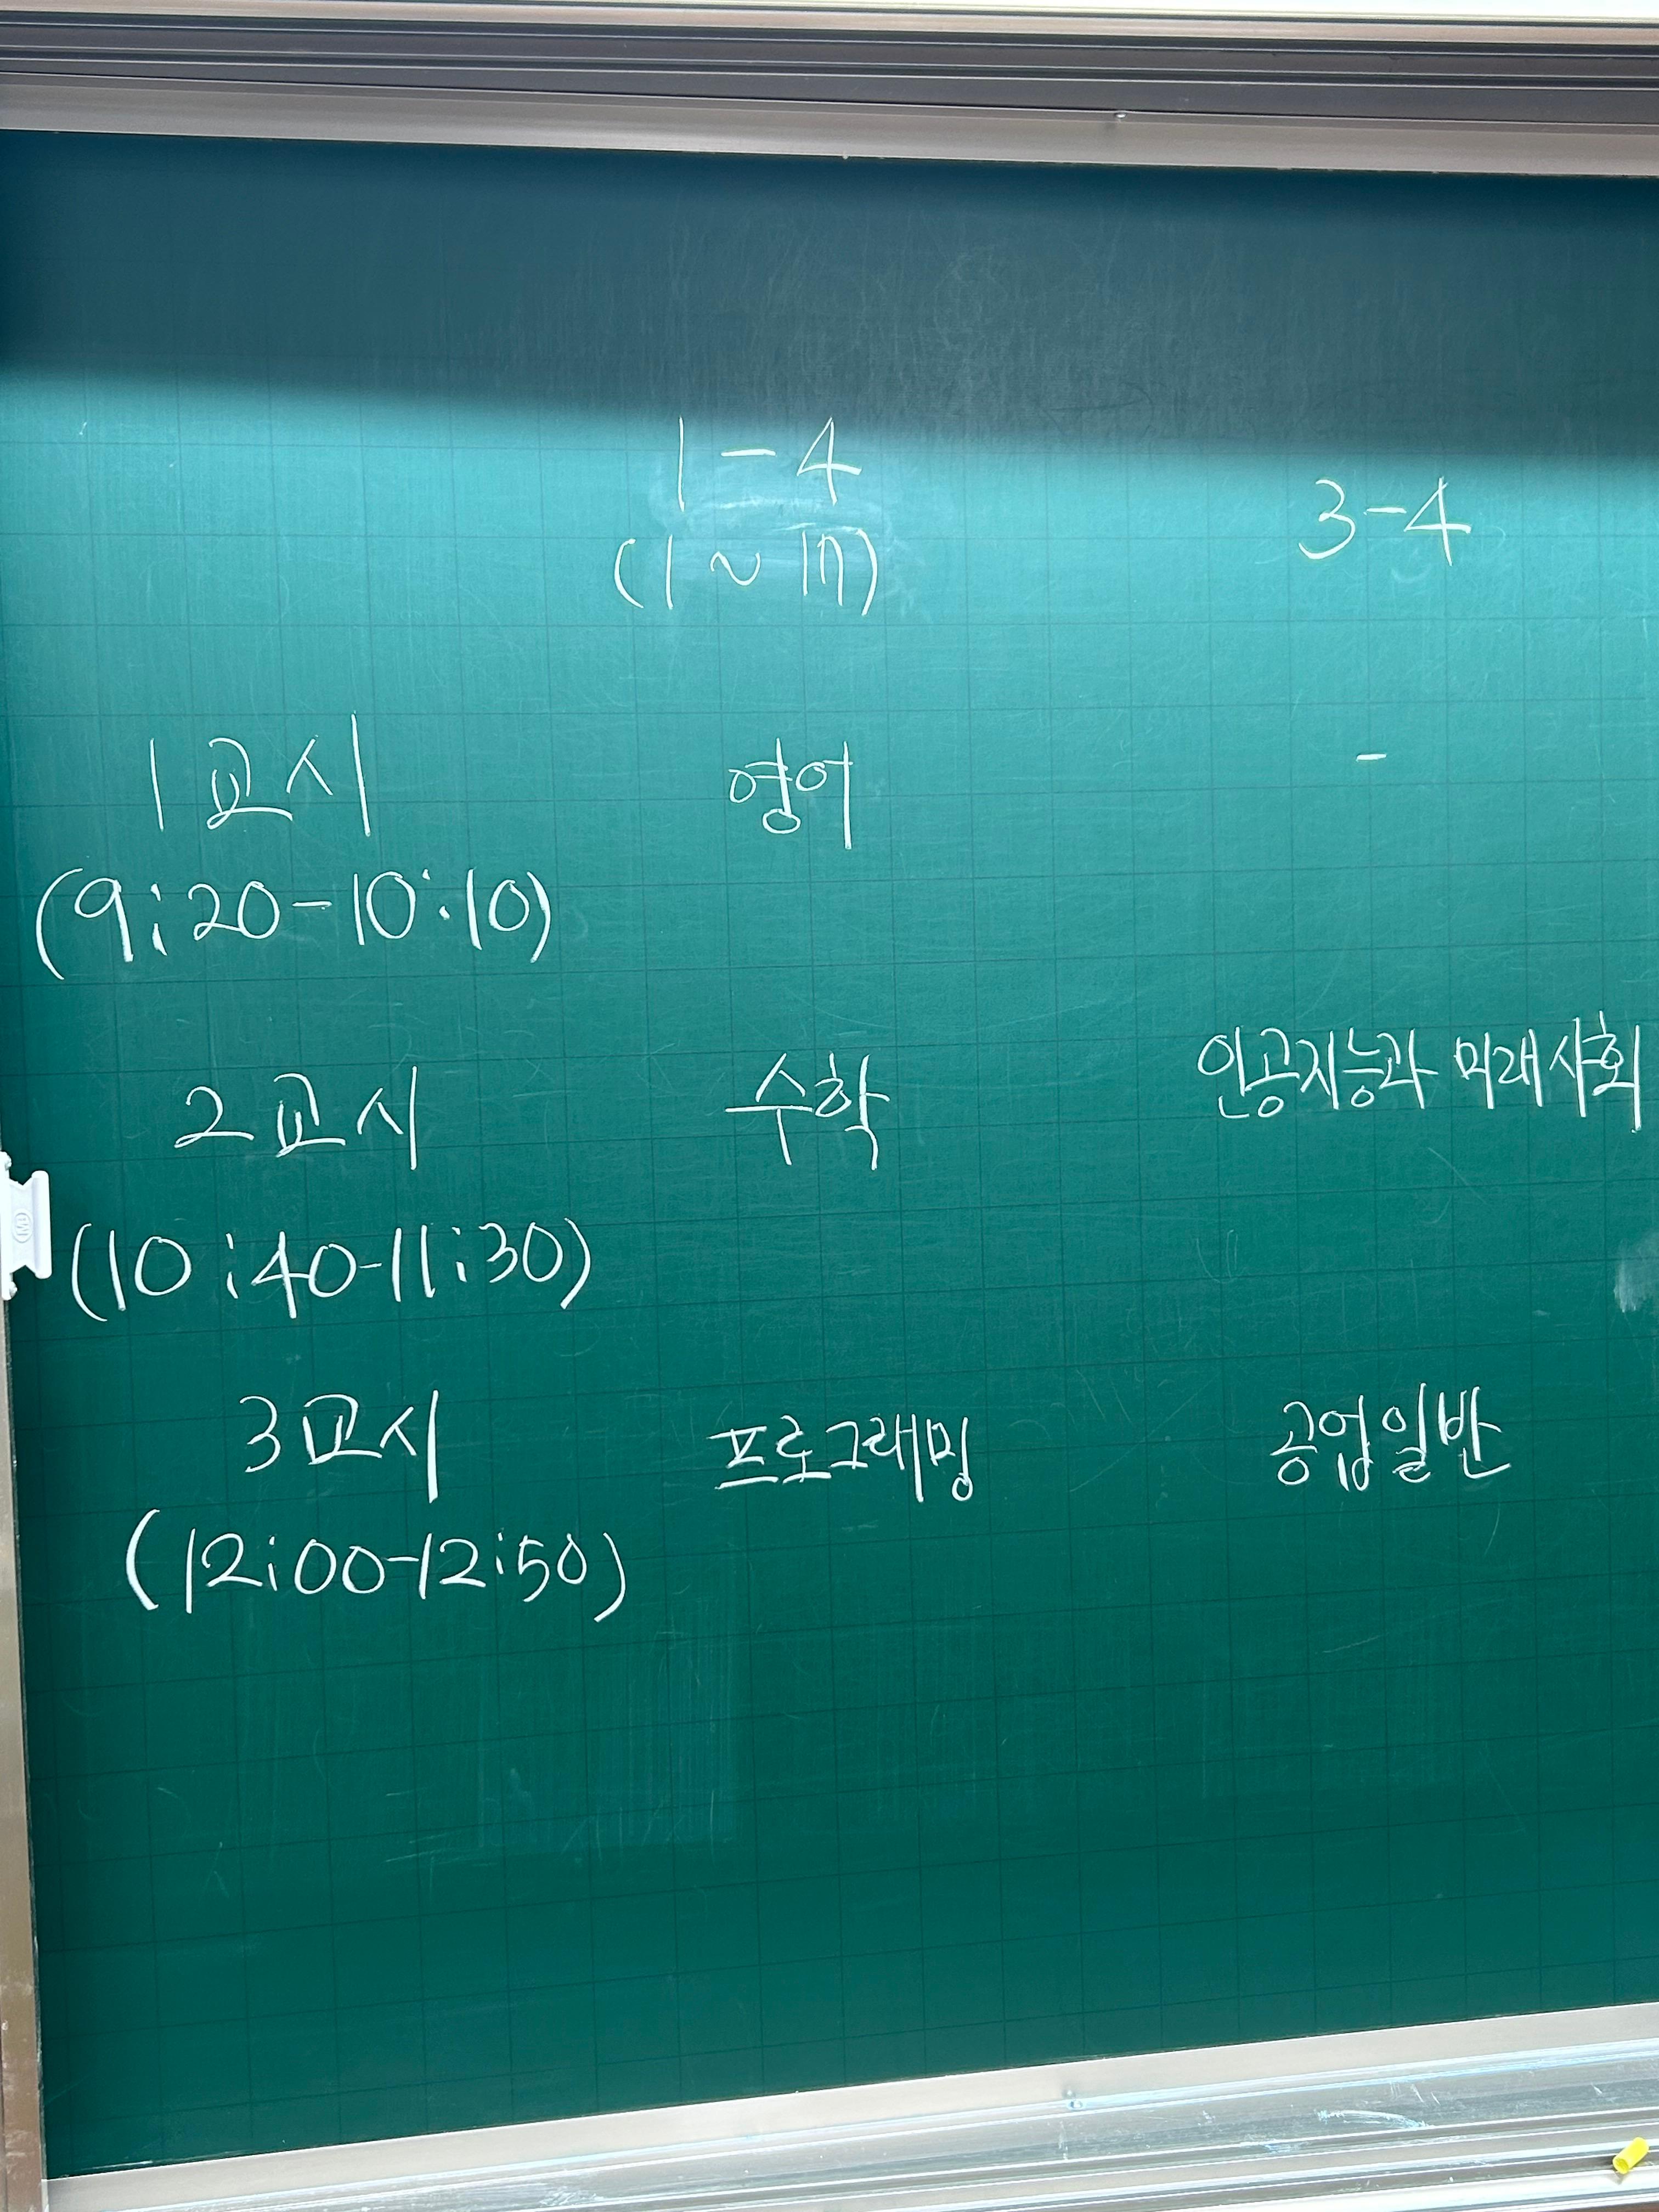 1-4
3-4
(1~17)
1교시 영어 -
(9:20-10:10)
2교시 수학 인공지능과 미래사회
(10:40-11:30)
3교시 프로그래밍 공업일반
(12:00-12:50)